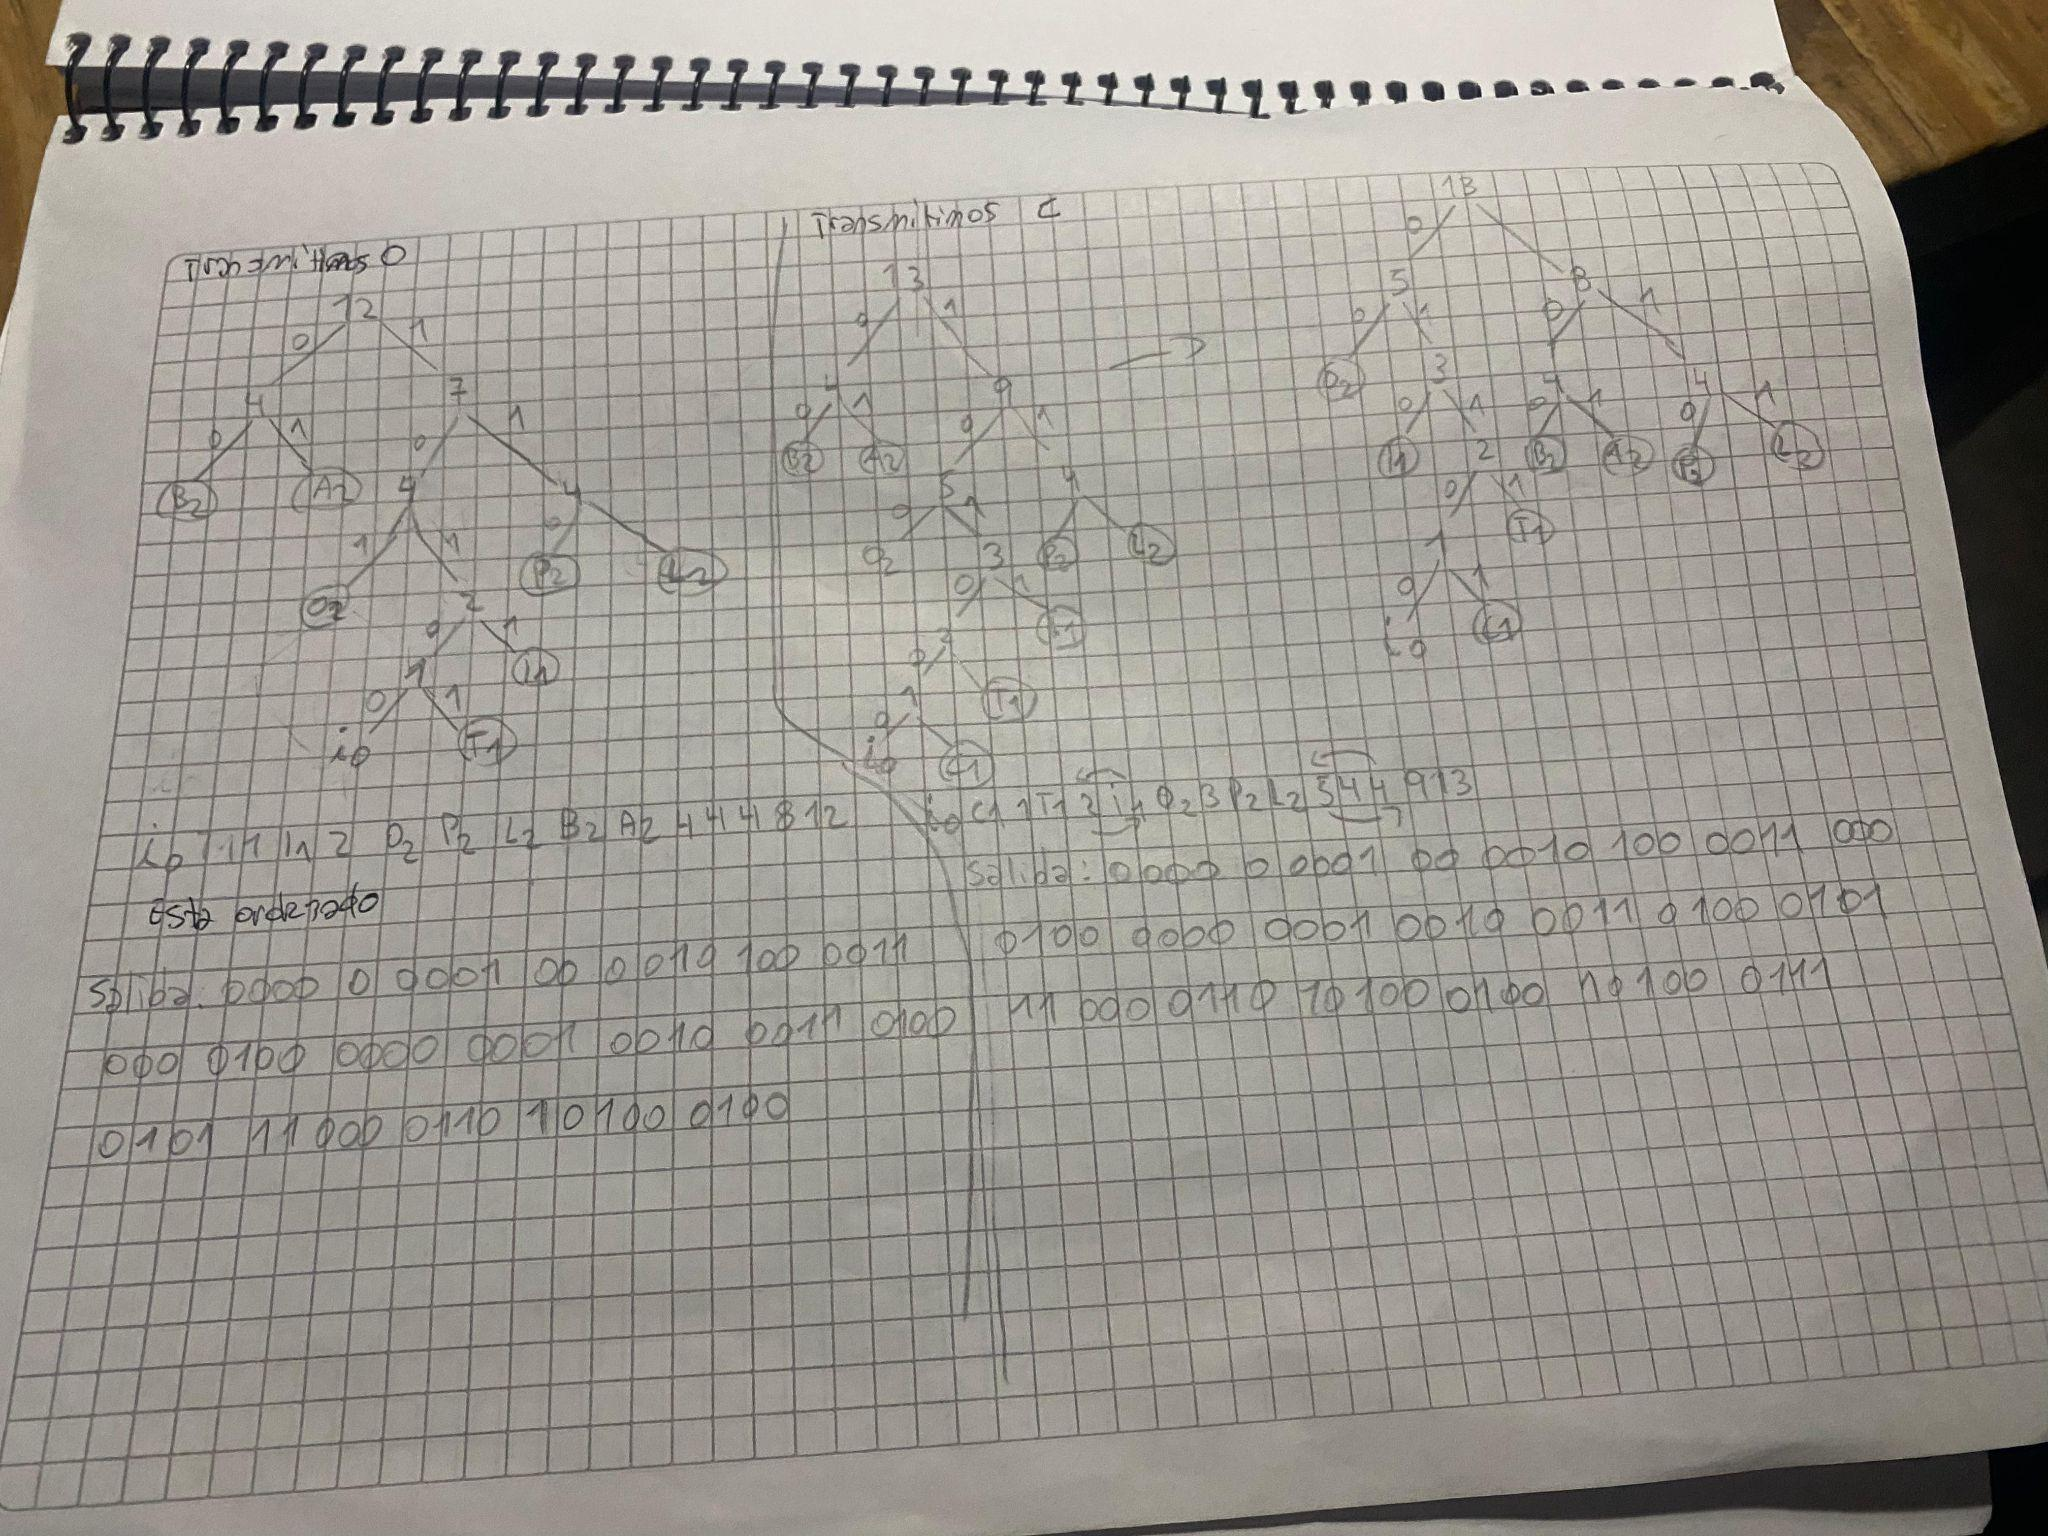 Transmitimos O
12
0 1
4 7
0 1 0 1
B2 A2 4 4
1 1 0
O2 2 P2 L2
0 1
1 I1
0 1
i0 T1
i0 T1 1 I1 2 O2 P2 L2 B2 A2 4 4 4 8 12
Esta ordenado
Saliba: 0000 0 0001 00 0010 100 0011
000 0100 0000 0001 0010 0011 0100
0101 11 000 0110 10 100 0100
Transmitimos C
13
0 1
4 9
0 1 0 1
B2 A2 5 4
0 1
O2 3 P2 L2
0 1
I1
0
1 T1
0
i0 C1
i0 C1 1 T1 2 I1 O2 3 P2 L2 5 4 4 9 13
Saliba: 0000 0 0001 00 0010 100 0011 000
0100 0000 0001 0010 0011 0100 0101
11 000 0110 10 100 0100 10 100 0111
13
0
5 8
0 1 0 1
O2 3 4 4
0 1 0 1 0 1
I1 2 B2 A2 P2 L2
0 1
1 T1
0 1
i0 C1